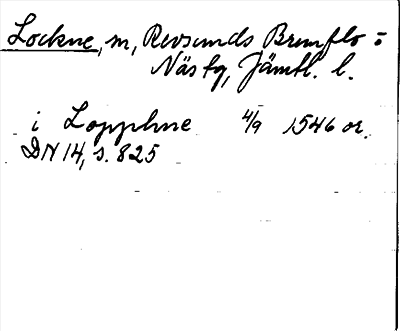 Lockne, m, Revsunds Brunflo o
Näs tg, Jämtl. l.
i Lopphne 4/9 1546 or.
DN 14, s. 825